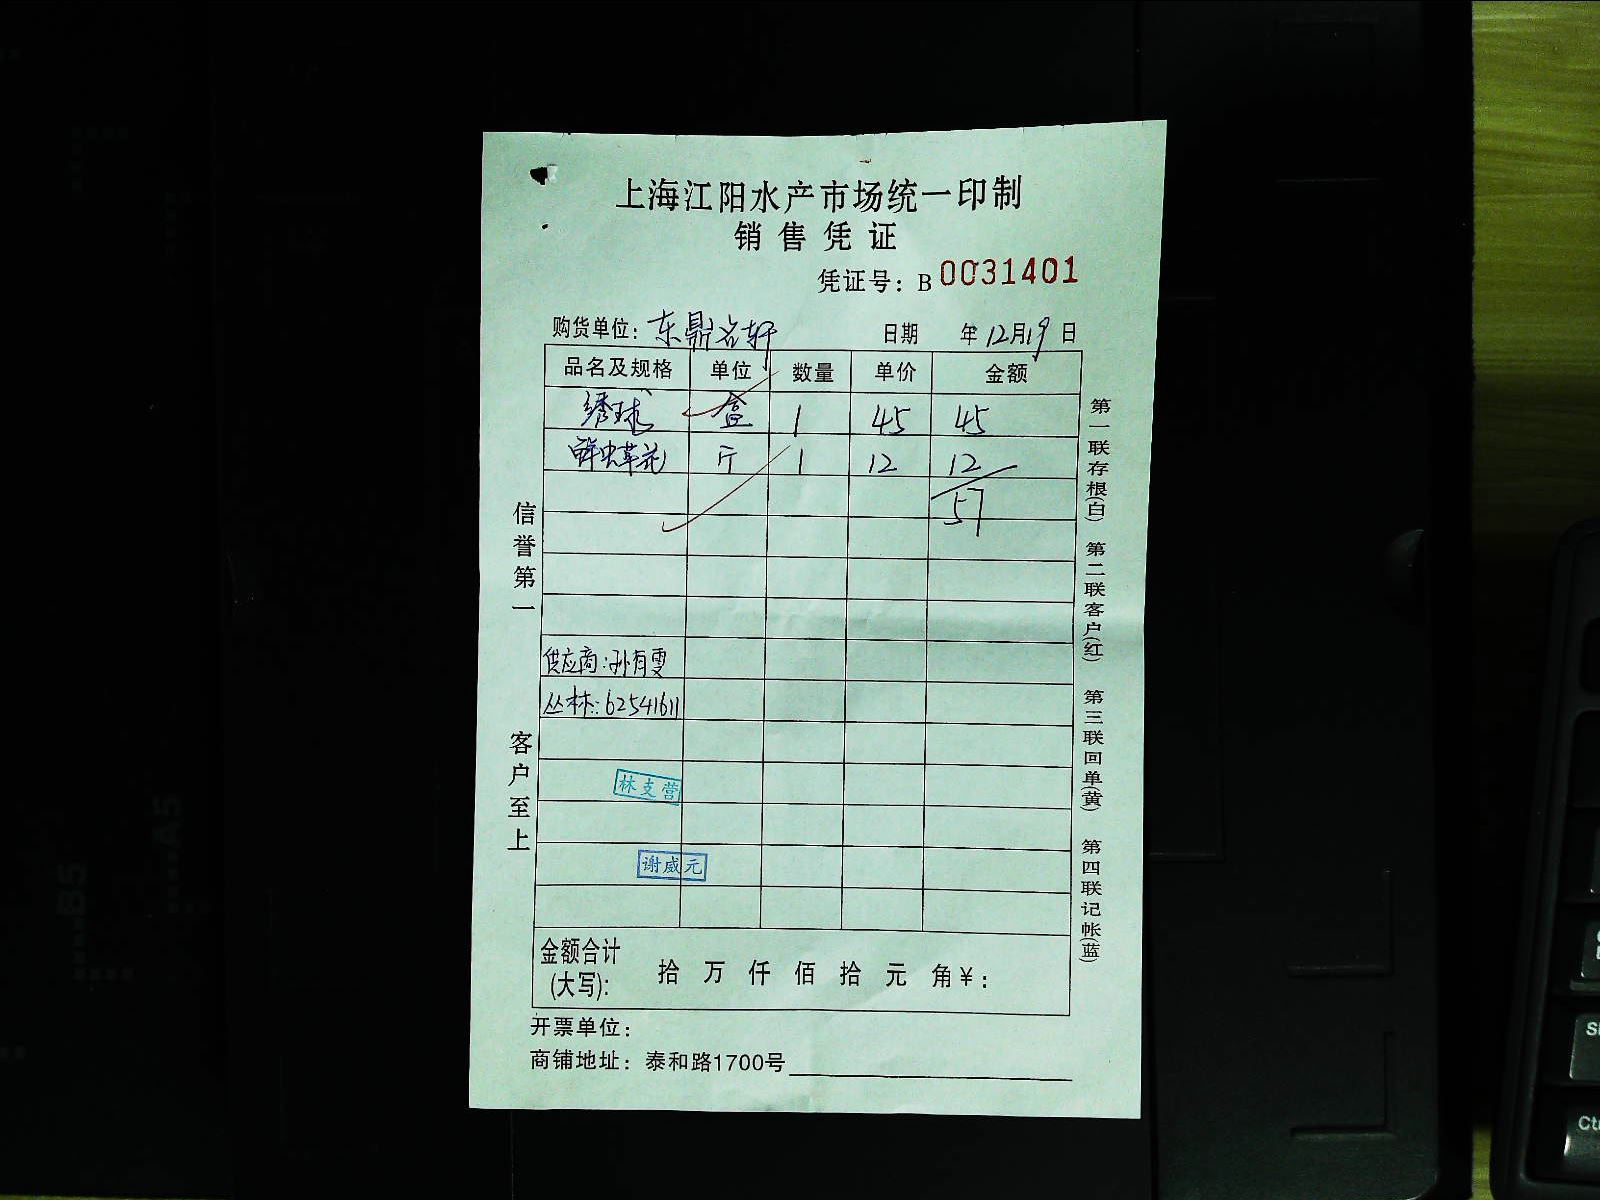 上海江阳水产市场统一印制
销售凭证
凭证号：B 0031401
购货单位：东鼎名轩 日期 年12月19日
品名及规格 单位 数量 单价 金额
绣球 盒 1 45 45
鲜虫草花 斤 1 12 12
57
供应商：孙有雯
丛林：62541611
林支营
谢威元
金额合计(大写)： 拾 万 仟 佰 拾 元 角 ￥：
开票单位：
商铺地址：泰和路1700号
信誉第一 客户至上
第一联存根(白) 第二联客户(红) 第三联回单(黄) 第四联记帐(蓝)
B5
A5
Ctr